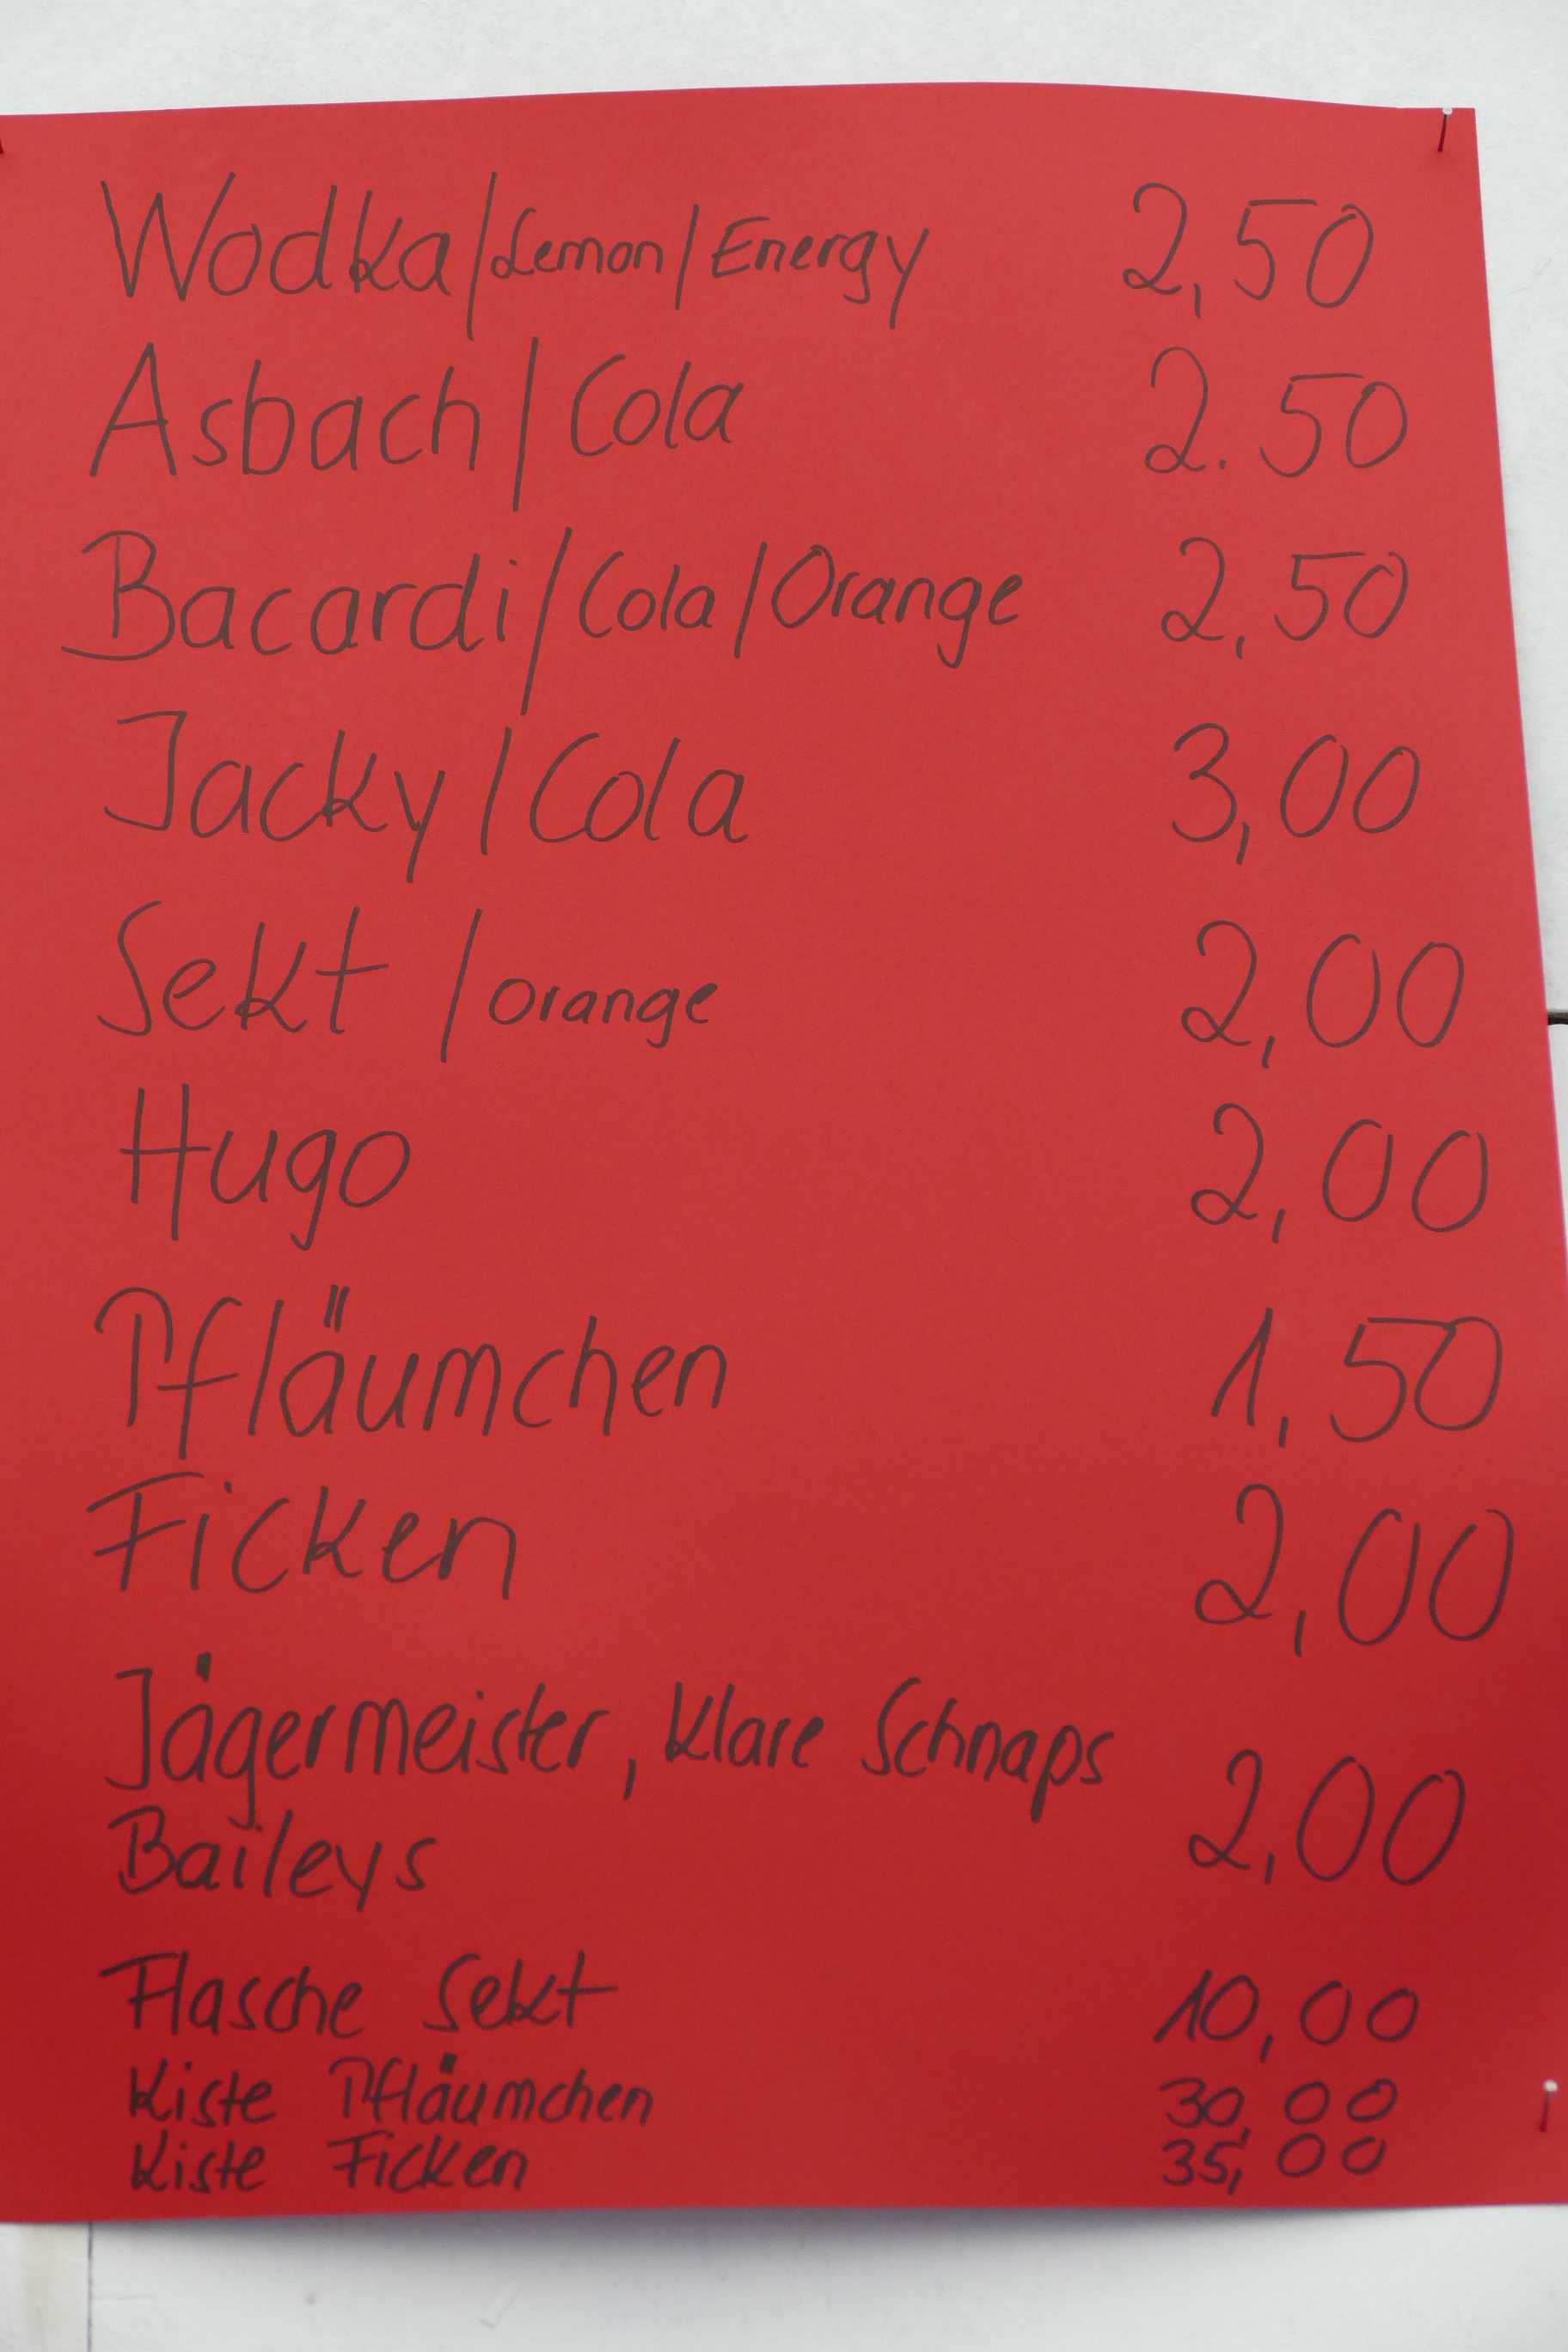 Wodka/Lemon/Energy 2,50
Asbach/Cola 2.50
Bacardi/Cola/Orange 2,50
Jacky/Cola 3,00
Sekt/Orange 2,00
Hugo 2,00
Pfläumchen 1,50
Ficken 2,00
Jägermeister, Klare Schnaps
Baileys 2,00
Flasche Sekt 10,00
Kiste Pfläumchen 30,00
Kiste Ficken 35,00